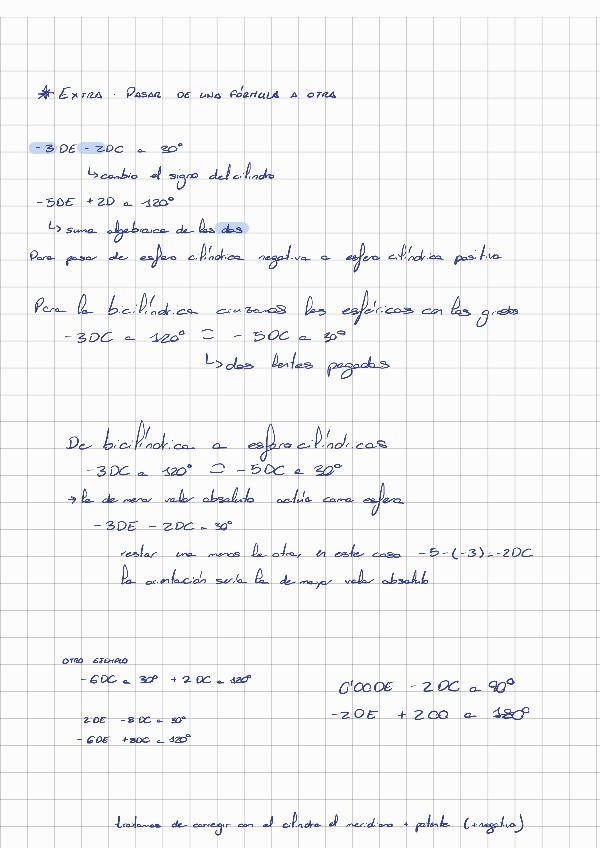 * EXTRA. PASAR DE UNA FÓRMULA A OTRA
-3DE -2DC a 30°
↳ cambio el signo del cilindro
-5DE +2D a 120°
↳ suma algebraica de los dos
Para pasar de esfero cilíndrica negativa a esfero cilíndrica positiva
Para la bicilíndrica cruzamos los esféricos con los grados
-3DC a 120° ⊃ -5DC a 30°
↳ dos lentes pegadas
De bicilíndrica a esferocilíndricas
-3DC a 120° ⊃ -5DC a 30°
→ la de menor valor absoluto actúa como esfera
-3DE -2DC a 30°
restar una menos la otra, en este caso -5-(-3)=-2DC
la orientación sería la de mayor valor absoluto
OTRO EJEMPLO
-6DC a 30° +2DC a 120°
2DE -8DC a 30°
-6DE +8DC a 120°
0'00DE -2DC a 90°
-2DE +2DD a 180°
tratamos de corregir con el cilindro el meridiano + potente (+negativo)